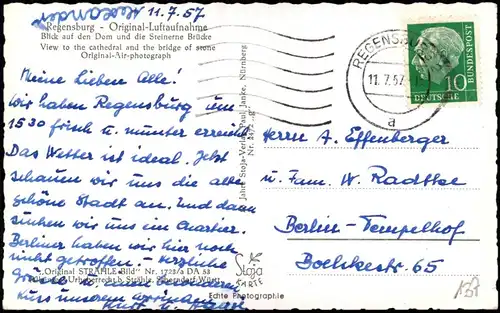 11.7.57.
Regensburg - Original-Luftaufnahme
Blick auf den Dom und die Steinerne Brücke
View to the cathedral and the bridge of stone
Original-Air-photograph
Meine Lieben Alle!
Wir haben Regensburg um
1530 frisch u. munter erreicht
Das Wetter ist ideal. Jetzt
schauen wir uns die alte
schöne Stadt an. Und dann
suchen wir uns ein Quartier.
Berliner haben wir hier noch
nicht getroffen. - Herzliche
Grüsse u. einen besonderen
Kuss unserem
Kurt u.
"Original STRÄHLE-Bild" Nr. 1723/a DA 53
b. Strähle, Schorndorf/Württ.
Stoja-Verlag Paul Janke, Nürnberg
Stoja
KARTE
Echte Photographie
REGENSBURG
11.7.57
a
10
DEUTSCHE
BUNDESPOST
Herrn A. Effenberger
u. Fam. W. Radtke
Berlin-Tempelhof
Boelkestr. 65